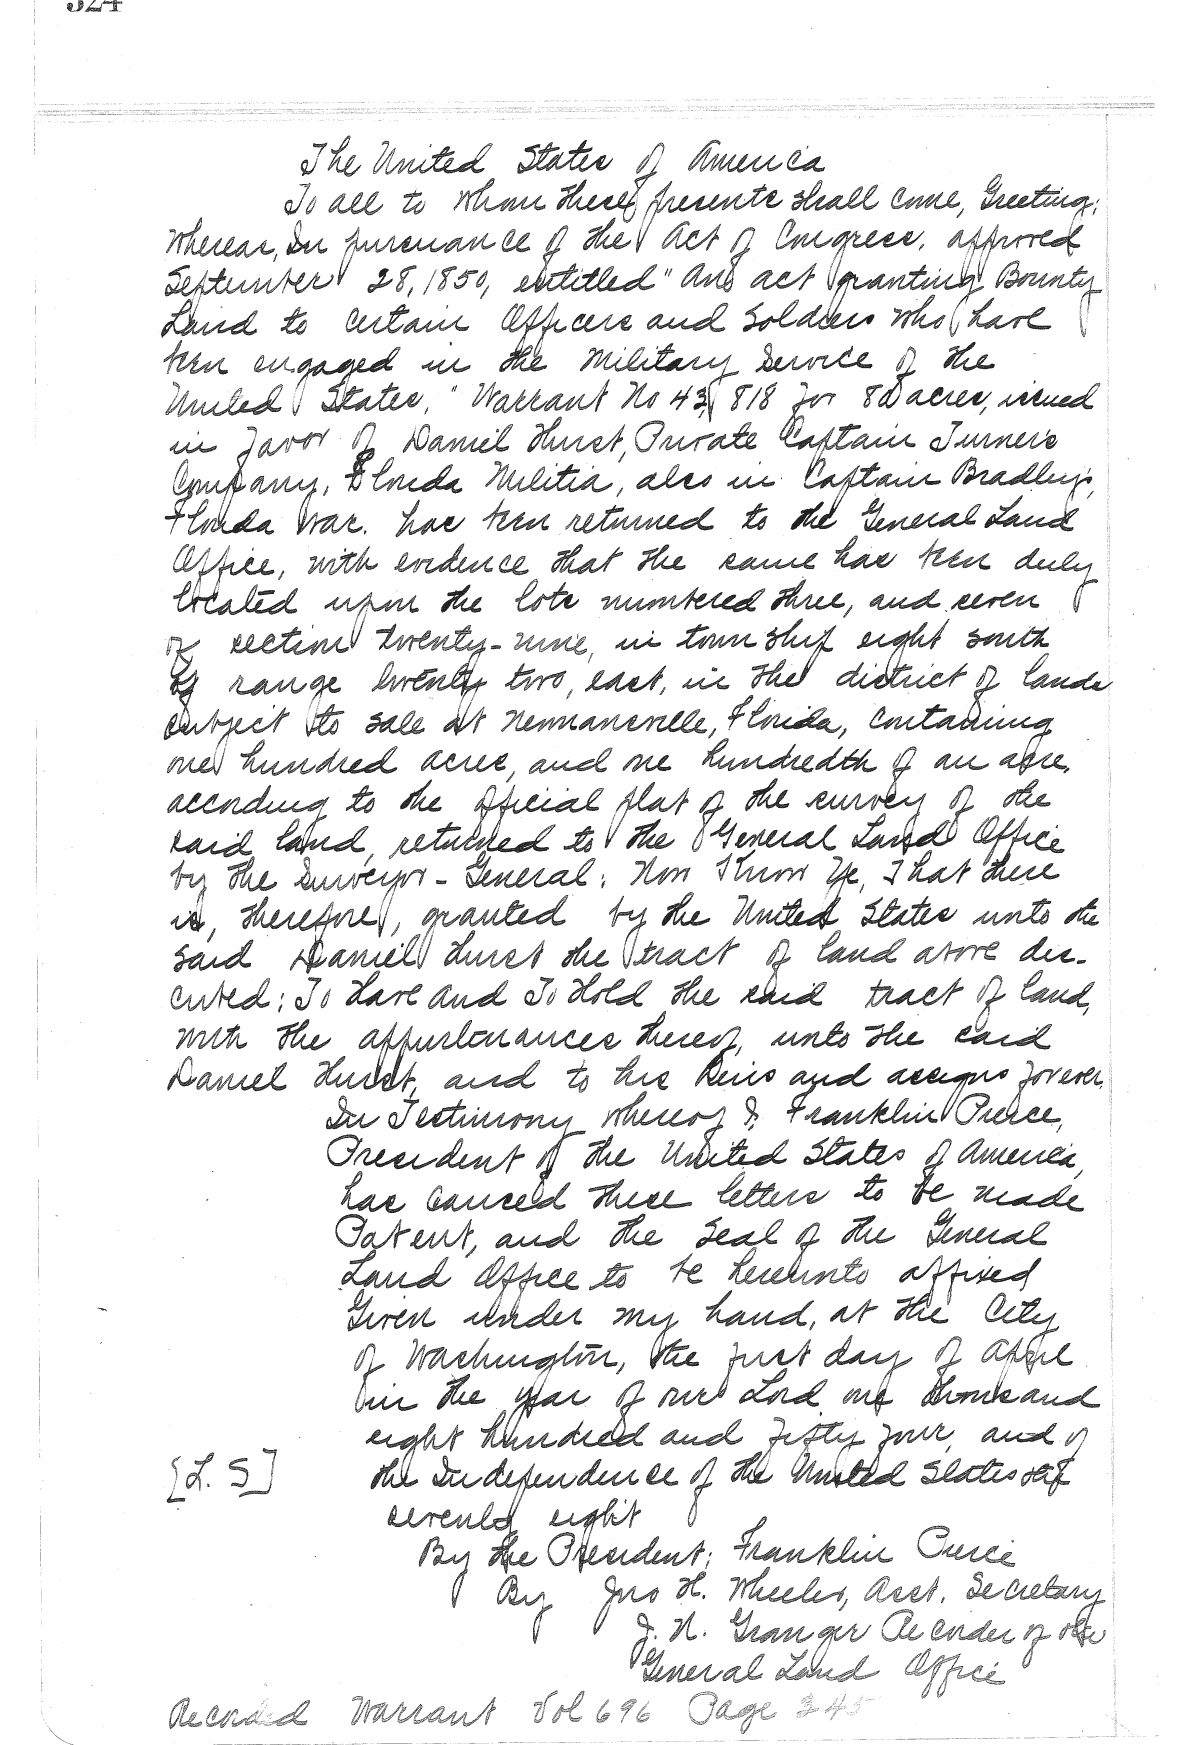 324
The United States of America
To all to whom these presents shall come, Greeting:
Whereas, In pursuance of the Act of Congress, approved
September 28, 1850, entitled "An act granting Bounty
Land to certain Officers and Soldiers who have
been engaged in the Military Service of the
United States," Warrant No 43,818 for 80 acres, issued
in favor of Daniel Hurst, Private Captain Turner's
Company, Florida Militia, also in Captain Bradley's,
Florida War. has been returned to the General Land
Office, with evidence that the same has been duly
located upon the lots numbered three, and seven
of section twenty-nine, in township eight south
of range twenty two, east, in the district of lands
subject to sale at Newnansville, Florida, containing
one hundred acres, and one hundredth of an acre,
according to the official plat of the survey of the
said land, returned to the General Land Office
by the Surveyor-General: Now Know Ye, That there
is, therefore, granted by the United States unto the
said Daniel Hurst the tract of land above des-
cribed: To Have and To Hold the said tract of land,
with the appurtenances thereof, unto the said
Daniel Hurst, and to his heirs and assigns forever.
In Testimony whereof I, Franklin Pierce,
President of the United States of America,
has caused these letters to be made
Patent, and the Seal of the General
Land Office to be hereunto affixed
Given under my hand, at the City
of Washington, the first day of April
in the year of our Lord one thousand
eight hundred and fifty four, and of
[L. S] the Independence of the United States the
seventy eight
By the President: Franklin Pierce
By Jno H. Wheeler, Asst. Secretary
J. N. Granger Recorder of the
General Land Office
Recorded Warrant Vol 696 Page 345